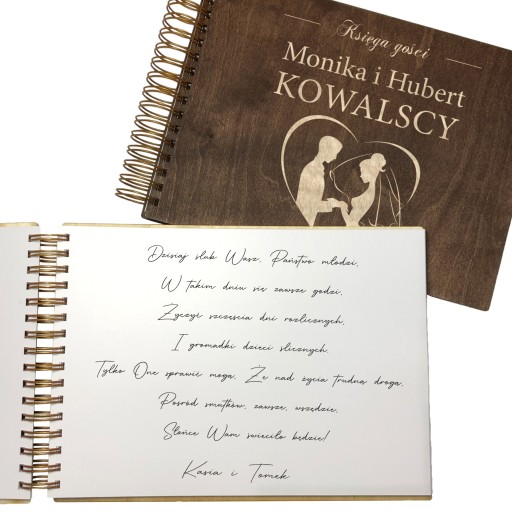 Księga gości
Monika i Hubert
KOWALSCY
Dzisiaj ślub Wasz, Państwo młodzi,
W takim dniu się zawsze godzi,
Życzyć szczęścia dni rozlicznych,
I gromadki dzieci ślicznych.
Tylko One sprawić mogą, Że nad życia trudną drogą,
Pośród smutków, zawsze, wszędzie,
Słońce Wam świeciło będzie!
Kasia i Tomek